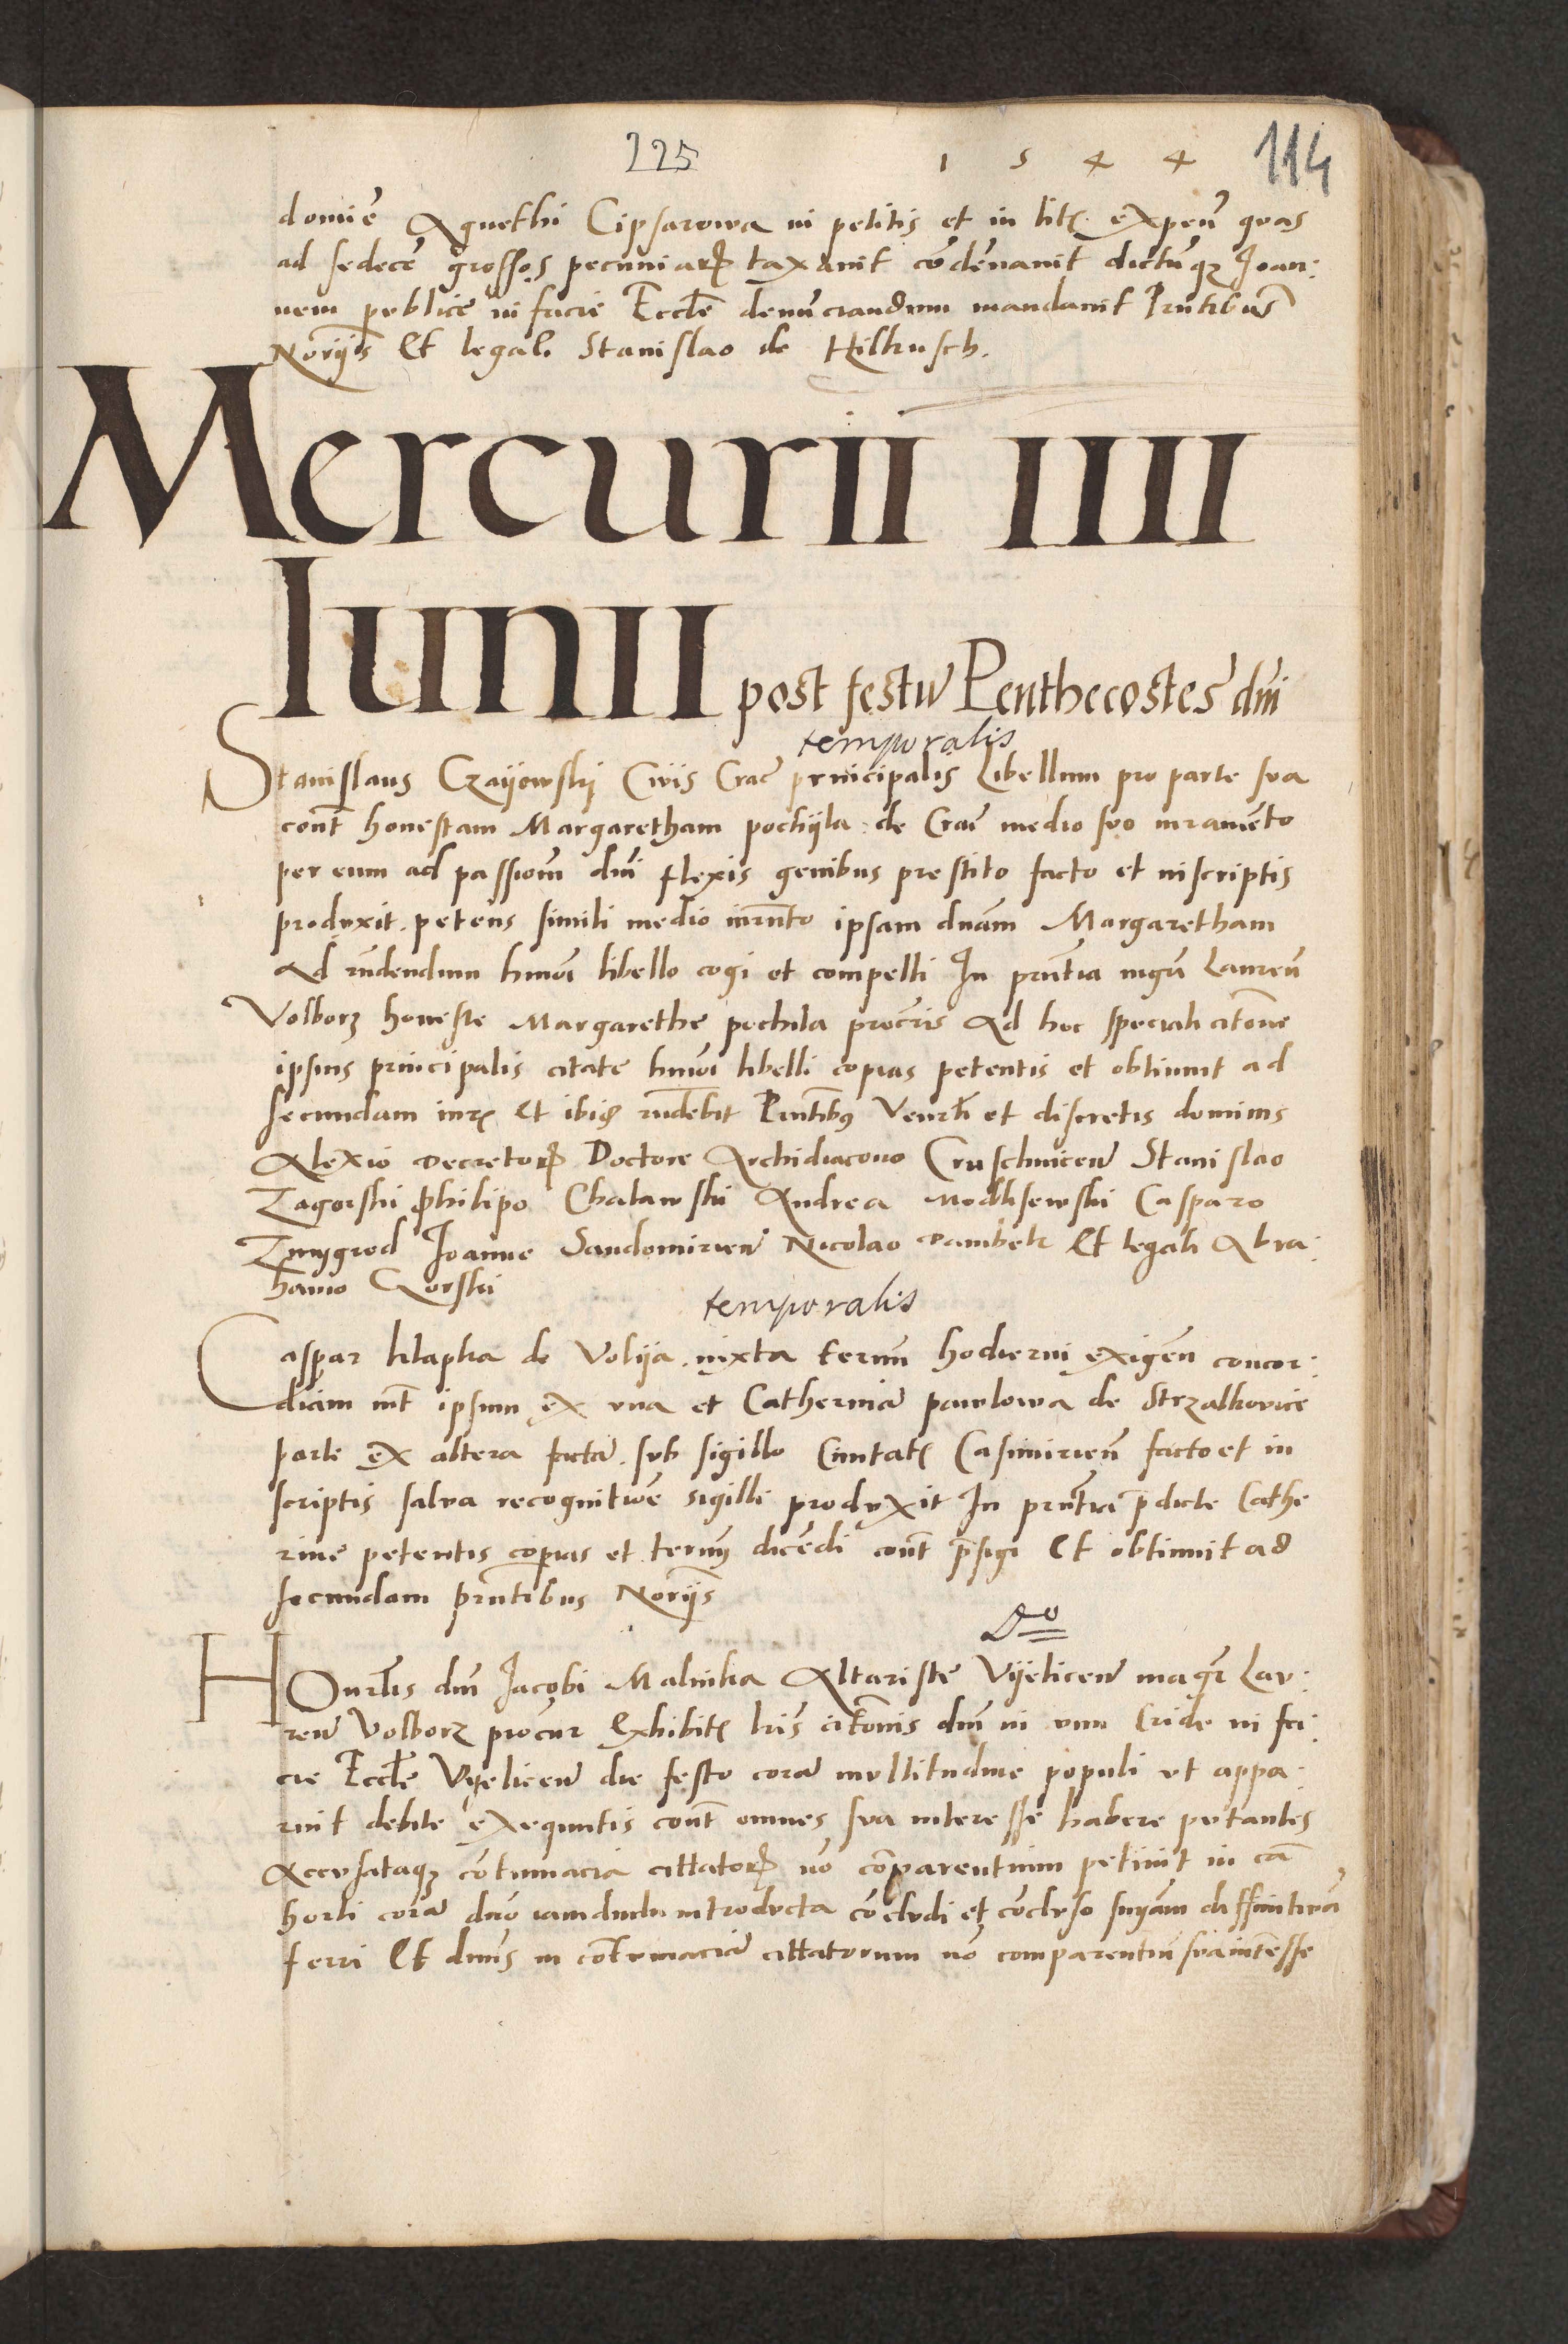 225 1 5 4 4 114
domiē Agnethi Cipsarowa in petitis et in litꝭ expeñ quas
ad sedecē grossos pecuniarꝝ taxavit cōdēnavit dictūqꝫ Joan:
nem publice in facie Eccłe denūciandum mandavit Pñtibus
Noriis Et legali Stanislao de Hilkusch.
Mercurii IIII
Iunii post festū Penthecostes dñi
temporalis
Stanislaus Czaÿowskÿ Civis Crac̄ principalis Libellum pro parte sua
cont̄ honestam Margaretham pochÿla de Crac̄ medio suo iuramēto
per eum ad passionē dñi flexis genibus prestito facto et in scriptis
produxit. petens simili medio iurnto ipsam dnām Margaretham
Ad rñdendum hmōi libello cogi et compelli In pñtia mgrī Laureñ
Volborz honeste Margarethe pochila procr̄is Ad hoc speciali citōne
ipsius principalis citate hmōi libelli copias petentis et obtinuit ad
secundam iurꝭ Et ibidē rñdebit Pñtibꝰ Venerł et discretis dominis
Alexio decretorꝝ Doctore Archidiacono Cruschvicēn Stanislao
Zagorski Philipo Chalawski Andrea Modlisewski Casparo
Zmygrod Joanne Sandomirieñ Nicolao Dambek Et legali Abra:
hamo Gorski
temporalis
Caspar klapka de Volÿa iuxta termī hodierni exigēn concor:
diam int̄ ipsum ex una et Catherinā pawlowa de Strzalkovice
parte ex altera factā sub sigillo Civitatꝭ Casimirieñ facto et in
scriptis salva recognitiōe sigilli produxit In pñtia p̄dicte Cathe
rine petentis copias et termī dicēdi cont̄ p̄figi Et obtinuit ad
secundam pñtibus Noriis
Do
Honorłis dñi Jacobi Malnika Altariste Vÿelicēn magr̄ Lau:
reñ Volborz procur̄ Exhibitꝭ lris citōnis dñi in vim Cride in fa:
cie Eccłe Vÿelicēn die festo corā multitudine populi ut appa:
ruit debite exequutis cont̄ omnes sua interesse habere putantes
Accusataqꝫ cōtumacia citatorꝝ nō comparentium petiuit in cā
horti corā dno iamdudu introducta cōcludi et cōcluso sniam diffinitivā
ferri Et dnus in cōtumaciā citatorum nō comparentiū sua intesse